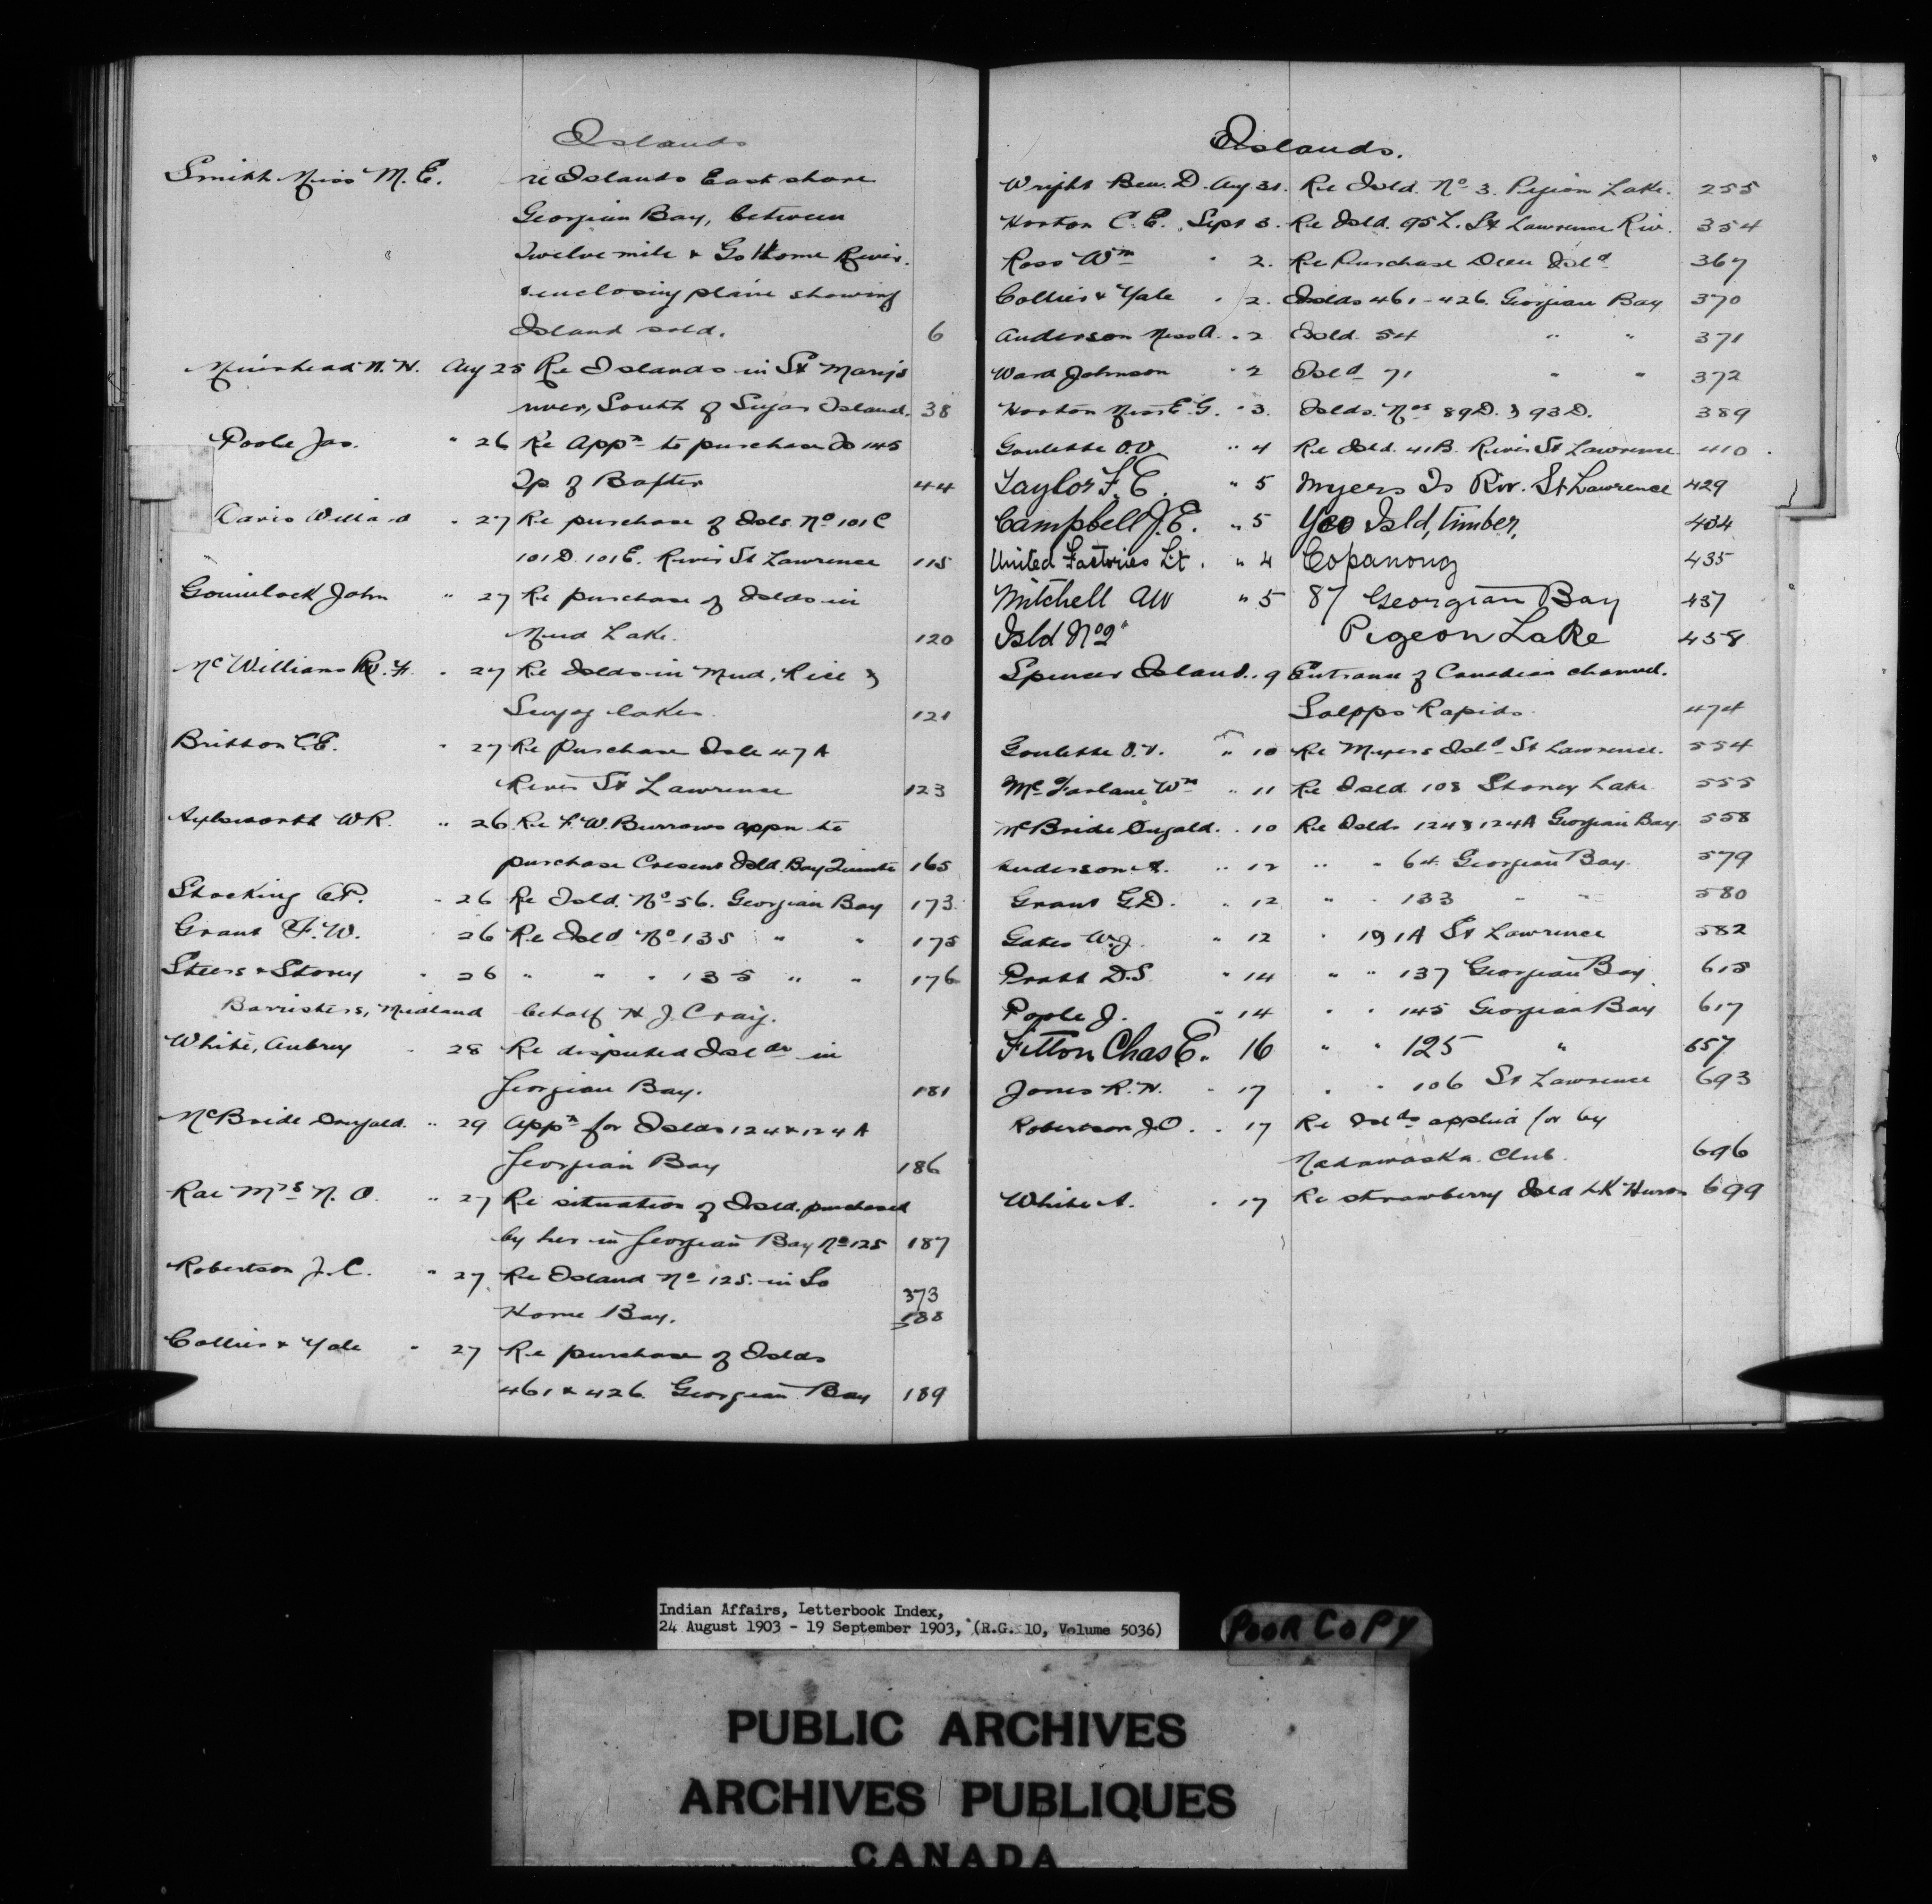 Islands
Smith Miss M. E. re Islands East shore
Georgian Bay, between
Twelve mile & Go Home River.
& enclosing plan showing
Island sold. 6
Muirhead N. H. Aug 25 Re Islands in St Mary's
river, South of Sugar Island. 38
Poole Jas. " 26 Re Appn to purchase Is 145
Tp of Baxter 44
Davis Willard " 27 Re purchase of Isls. No 101 C
101 D. 101 E. River St Lawrence 115
Gouinlock John " 27 Re purchase of Islds in
Mud Lake. 120
McWilliams . 27 Re Islds in Mud, Rice &
Scugog lakes. 121
Britton C.E. " 27 Re Purchase Isle 47 A
River St Lawrence 123
Aylsworth W.R. " 26 Re F. W. Burrows appn to
purchase Cresent Isld. Bay Quinte 165
Stocking C.P. " 26 Re Isld. No 56. Georgian Bay 173
Grant F. W. 26 Re Isld No 135 " " 175
Steers & Storey " 26 " " " 135 " " 176
Barristers, Midland behalf H. J. Craig.
White, Aubrey " 28 Re disputed Islds in
Georgian Bay. 181
McBride Dougald. " 29 Appn for Islds 124 & 124 A
Georgian Bay 186
Rae Mrs N. O. " 27 Re situation of Isld. purchased
by her in Georgian Bay No 125 187
Robertson J. C. " 27 Re Island No 125. in Go
Home Bay. 373
188
Collier & Yale " 27 Re purchase of Islds
461 & 426. Georgian Bay 189
Islands.
Wright Ben. D. Aug 31. Re Isld. No 3. Pigeon Lake. 255
Horton C. E. Sept 3. Re Isld. 95 L. St Lawrence Riv. 354
Ross Wm " 2. Re Purchase Deer Isld 367
Collier & Yale . 2. Islds 461 - 426. Georgian Bay 370
Anderson Miss A. . 2 Isld. 54 " " 371
Ward Johnson " 2 Isld 71 " " 372
Horton Miss E. G. " 3. Islds. Nos 89 D. & 93 D. 389
Goulette O.V. " 4 Re Isld. 41 B. River St Lawrence 410
Taylor F. E. " 5 Myers Is Riv. St Lawrence 429
Campbell J. E. " 5 Yeo Isld, timber, 434
United Factories Lt. " 4 Copanong 435
Mitchell AW " 5 87 Georgian Bay 437
Isld No 2 " Pigeon Lake 458
Spencer Island . 9 Entrance of Canadian channel.
Galops Rapids. 474
Goulette O.V. " 10 Re Myers Isld St Lawrence. 554
McFarlane Wm " 11 Re Isld 108 Stoney Lake. 555
McBride Dugald. . 10 Re Islds 124 & 124A Georgian Bay 558
Anderson A. " 12 " " 64 Georgian Bay. 579
Grant G.D. " 12 " " 133 " " 580
Gates W.J. " 12 " 191A St Lawrence 582
Pratt D.S. " 14 " " 137 Georgian Bay 615
Poole J. " 14 " " 145 Georgian Bay 617
Fitton Chas E. 16 " " 125 " 657
Jones R. H. " 17 " " 106 St Lawrence 693
Robertson J.O. . 17 Re Islds applied for by
Madawaska Club. 696
White A. . 17 Re strawberry Isld LK Huron 699
Indian Affairs, Letterbook Index,
24 August 1903 - 19 September 1903, (R.G. 10, Volume 5036)
POOR COPY
PUBLIC ARCHIVES
ARCHIVES PUBLIQUES
CANADA